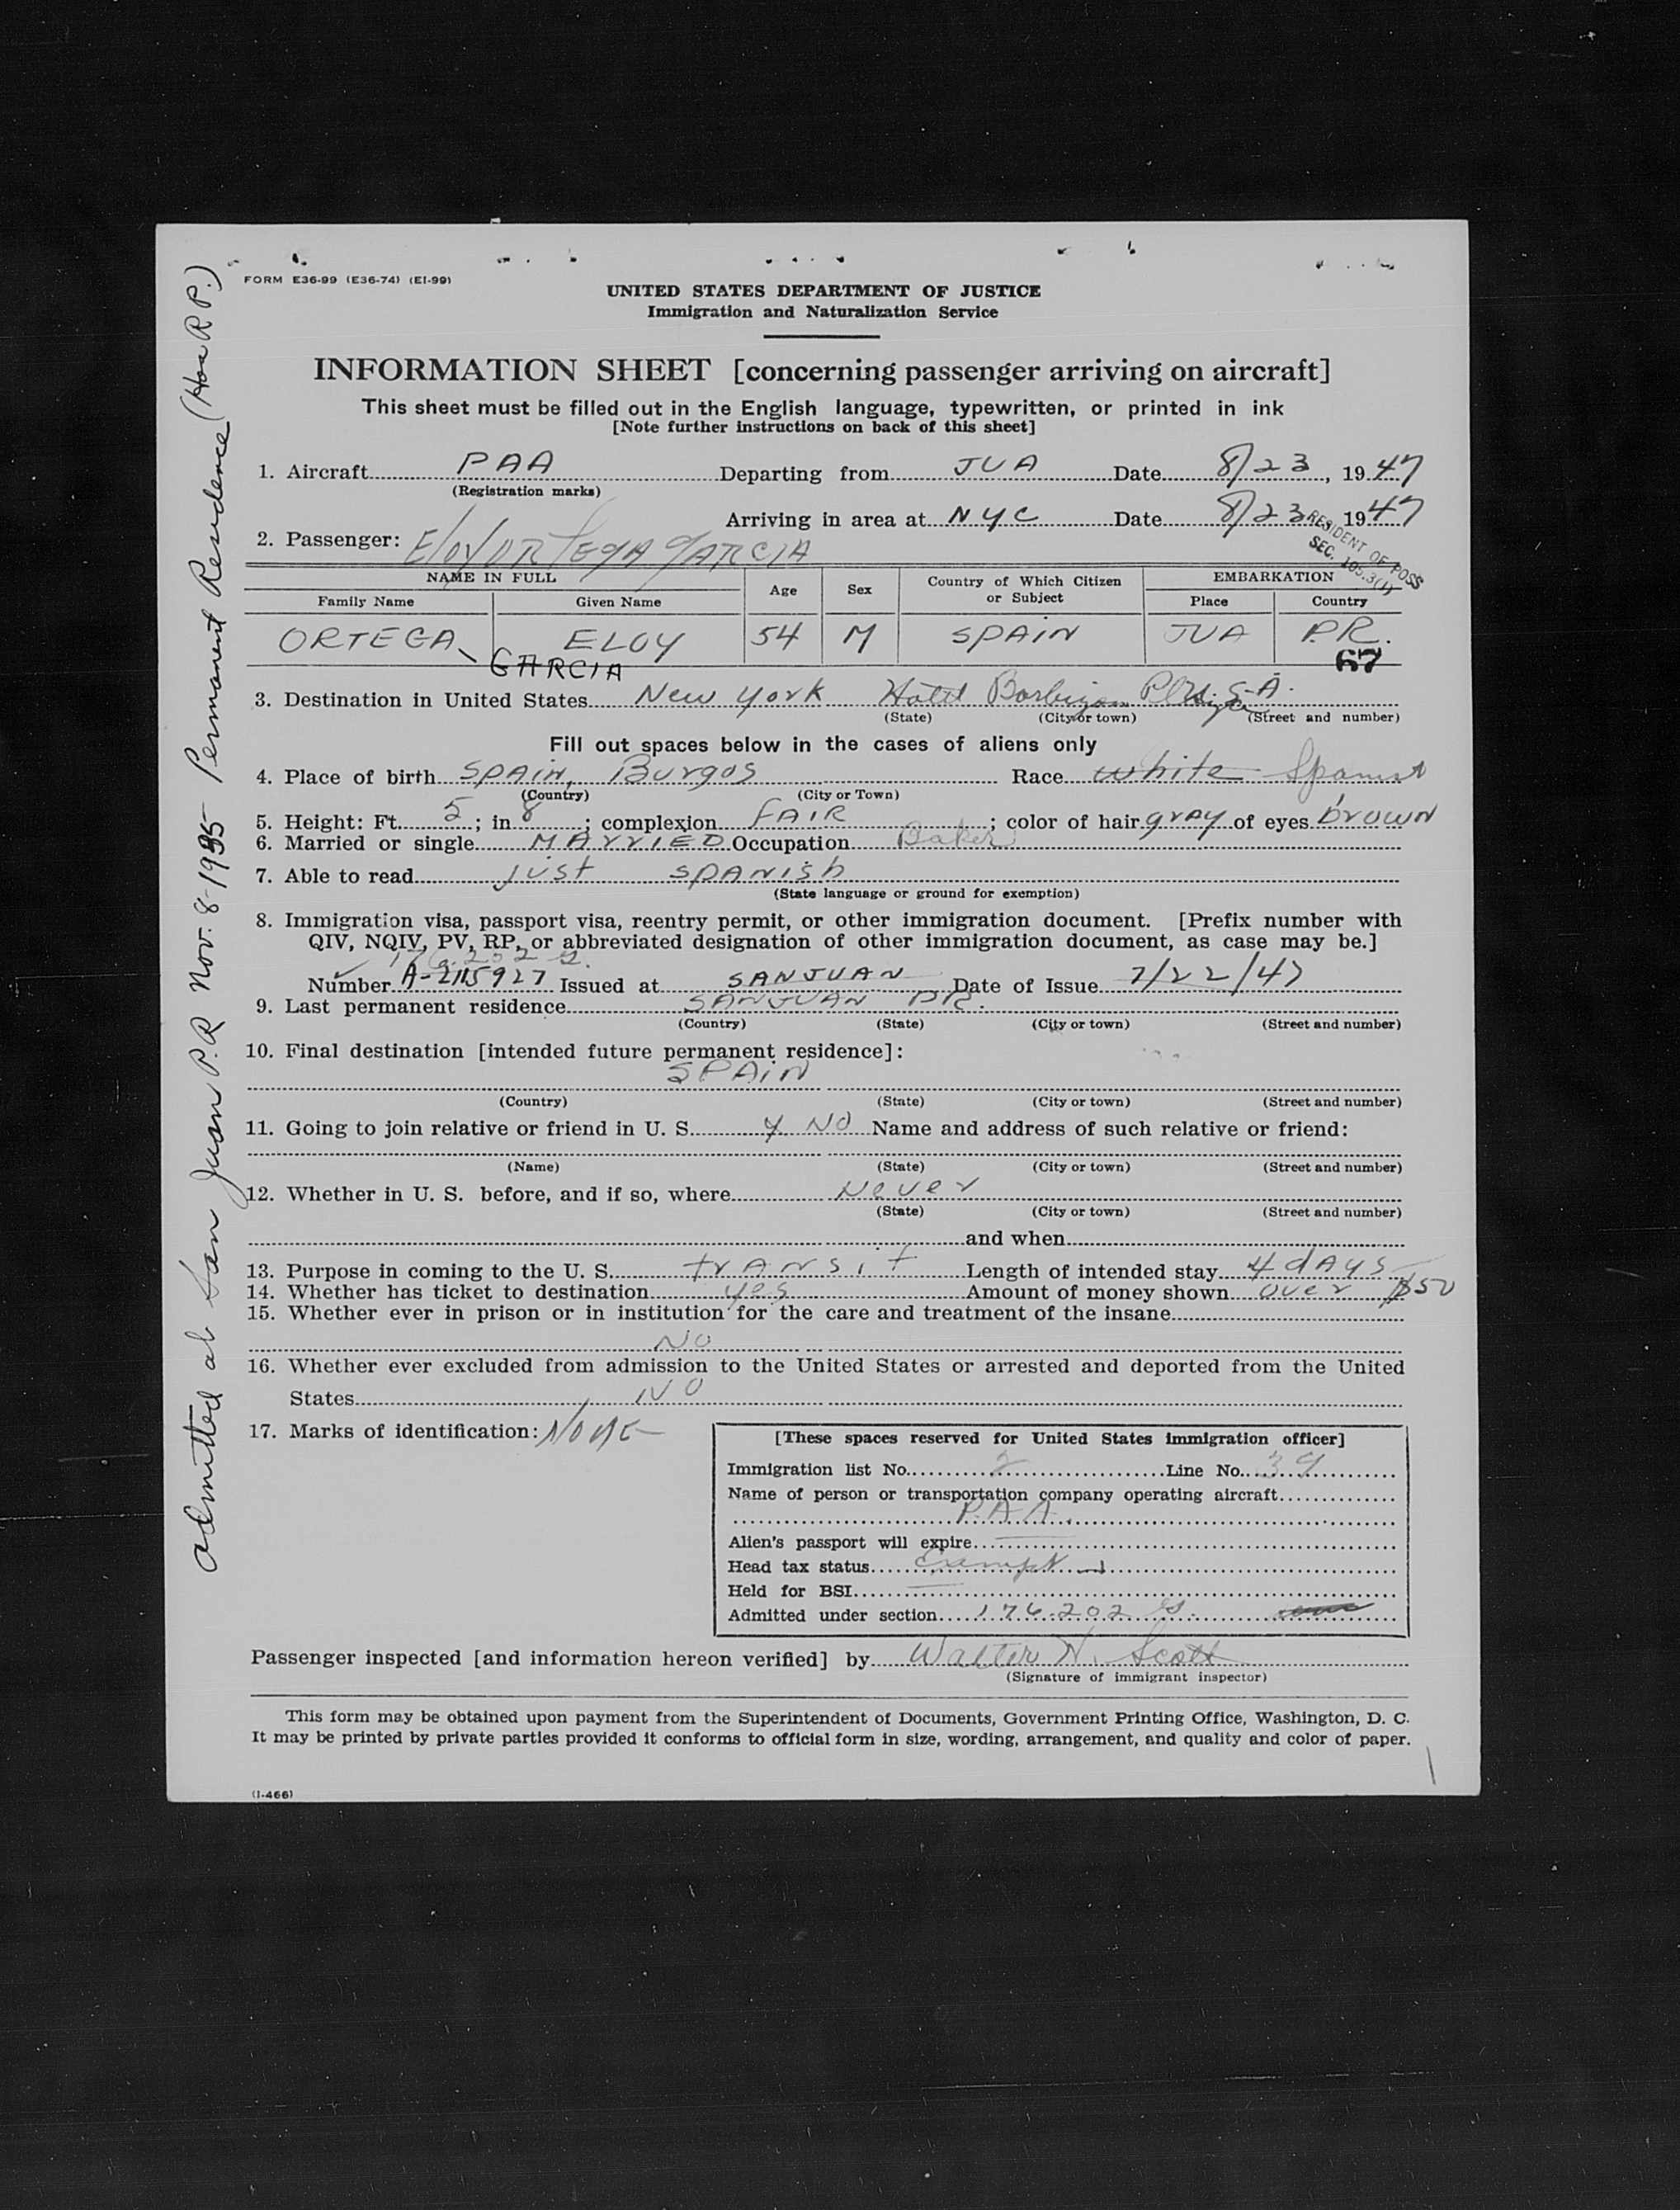 FORM E36-99 (E36-74) (EI-99)
UNITED STATES DEPARTMENT OF JUSTICE
Immigration and Naturalization Service
INFORMATION SHEET [concerning passenger arriving on aircraft]
This sheet must be filled out in the English language, typewritten, or printed in ink
[Note further instructions on back of this sheet]
1. Aircraft PAA Departing from JUA Date 8/23, 1947
(Registration marks)
Arriving in area at NYC Date 8/23 1947
RESIDENT OF POSS
SEC. 105.3(1)
2. Passenger: Eloy ORTEGA GARCIA
NAME IN FULL Age Sex Country of Which Citizen or Subject EMBARKATION
Family Name Given Name Place Country
ORTEGA ELOY 54 M SPAIN JUA P.R.
GARCIA 67
3. Destination in United States New York Hotel Barbizon U.S.A.
(State) (City or town) (Street and number)
Fill out spaces below in the cases of aliens only
4. Place of birth SPAIN, Burgos Race white Spanish
(Country) (City or Town)
5. Height: Ft. 5; in 8; complexion FAIR; color of hair gray of eyes brown
6. Married or single MARRIED Occupation Baker
7. Able to read just SPANish
(State language or ground for exemption)
8. Immigration visa, passport visa, reentry permit, or other immigration document. [Prefix number with
QIV, NQIV, PV, RP, or abbreviated designation of other immigration document, as case may be.]
Number A-2115927 Issued at SAN JUAN Date of Issue 7/22/47
9. Last permanent residence SAN JUAN PR.
(Country) (State) (City or town) (Street and number)
10. Final destination [intended future permanent residence]:
SPAIN
(Country) (State) (City or town) (Street and number)
11. Going to join relative or friend in U. S. NO Name and address of such relative or friend:
(Name) (State) (City or town) (Street and number)
12. Whether in U. S. before, and if so, where Never
(State) (City or town) (Street and number)
and when
13. Purpose in coming to the U. S. transit Length of intended stay 4 days
14. Whether has ticket to destination yes Amount of money shown over $50
15. Whether ever in prison or in institution for the care and treatment of the insane
NO
16. Whether ever excluded from admission to the United States or arrested and deported from the United
States NO
17. Marks of identification: NONE
[These spaces reserved for United States immigration officer]
Immigration list No. 2 Line No. 39
Name of person or transportation company operating aircraft
P.A.A.
Alien's passport will expire
Head tax status Exempt
Held for BSI
Admitted under section 176.202
Passenger inspected [and information hereon verified] by Walter N. Scott
(Signature of immigrant inspector)
This form may be obtained upon payment from the Superintendent of Documents, Government Printing Office, Washington, D. C.
It may be printed by private parties provided it conforms to official form in size, wording, arrangement, and quality and color of paper.
(I-466)
Admitted at San Juan P.R Nov. 8-1935 Permanent Residence (Has R P.)